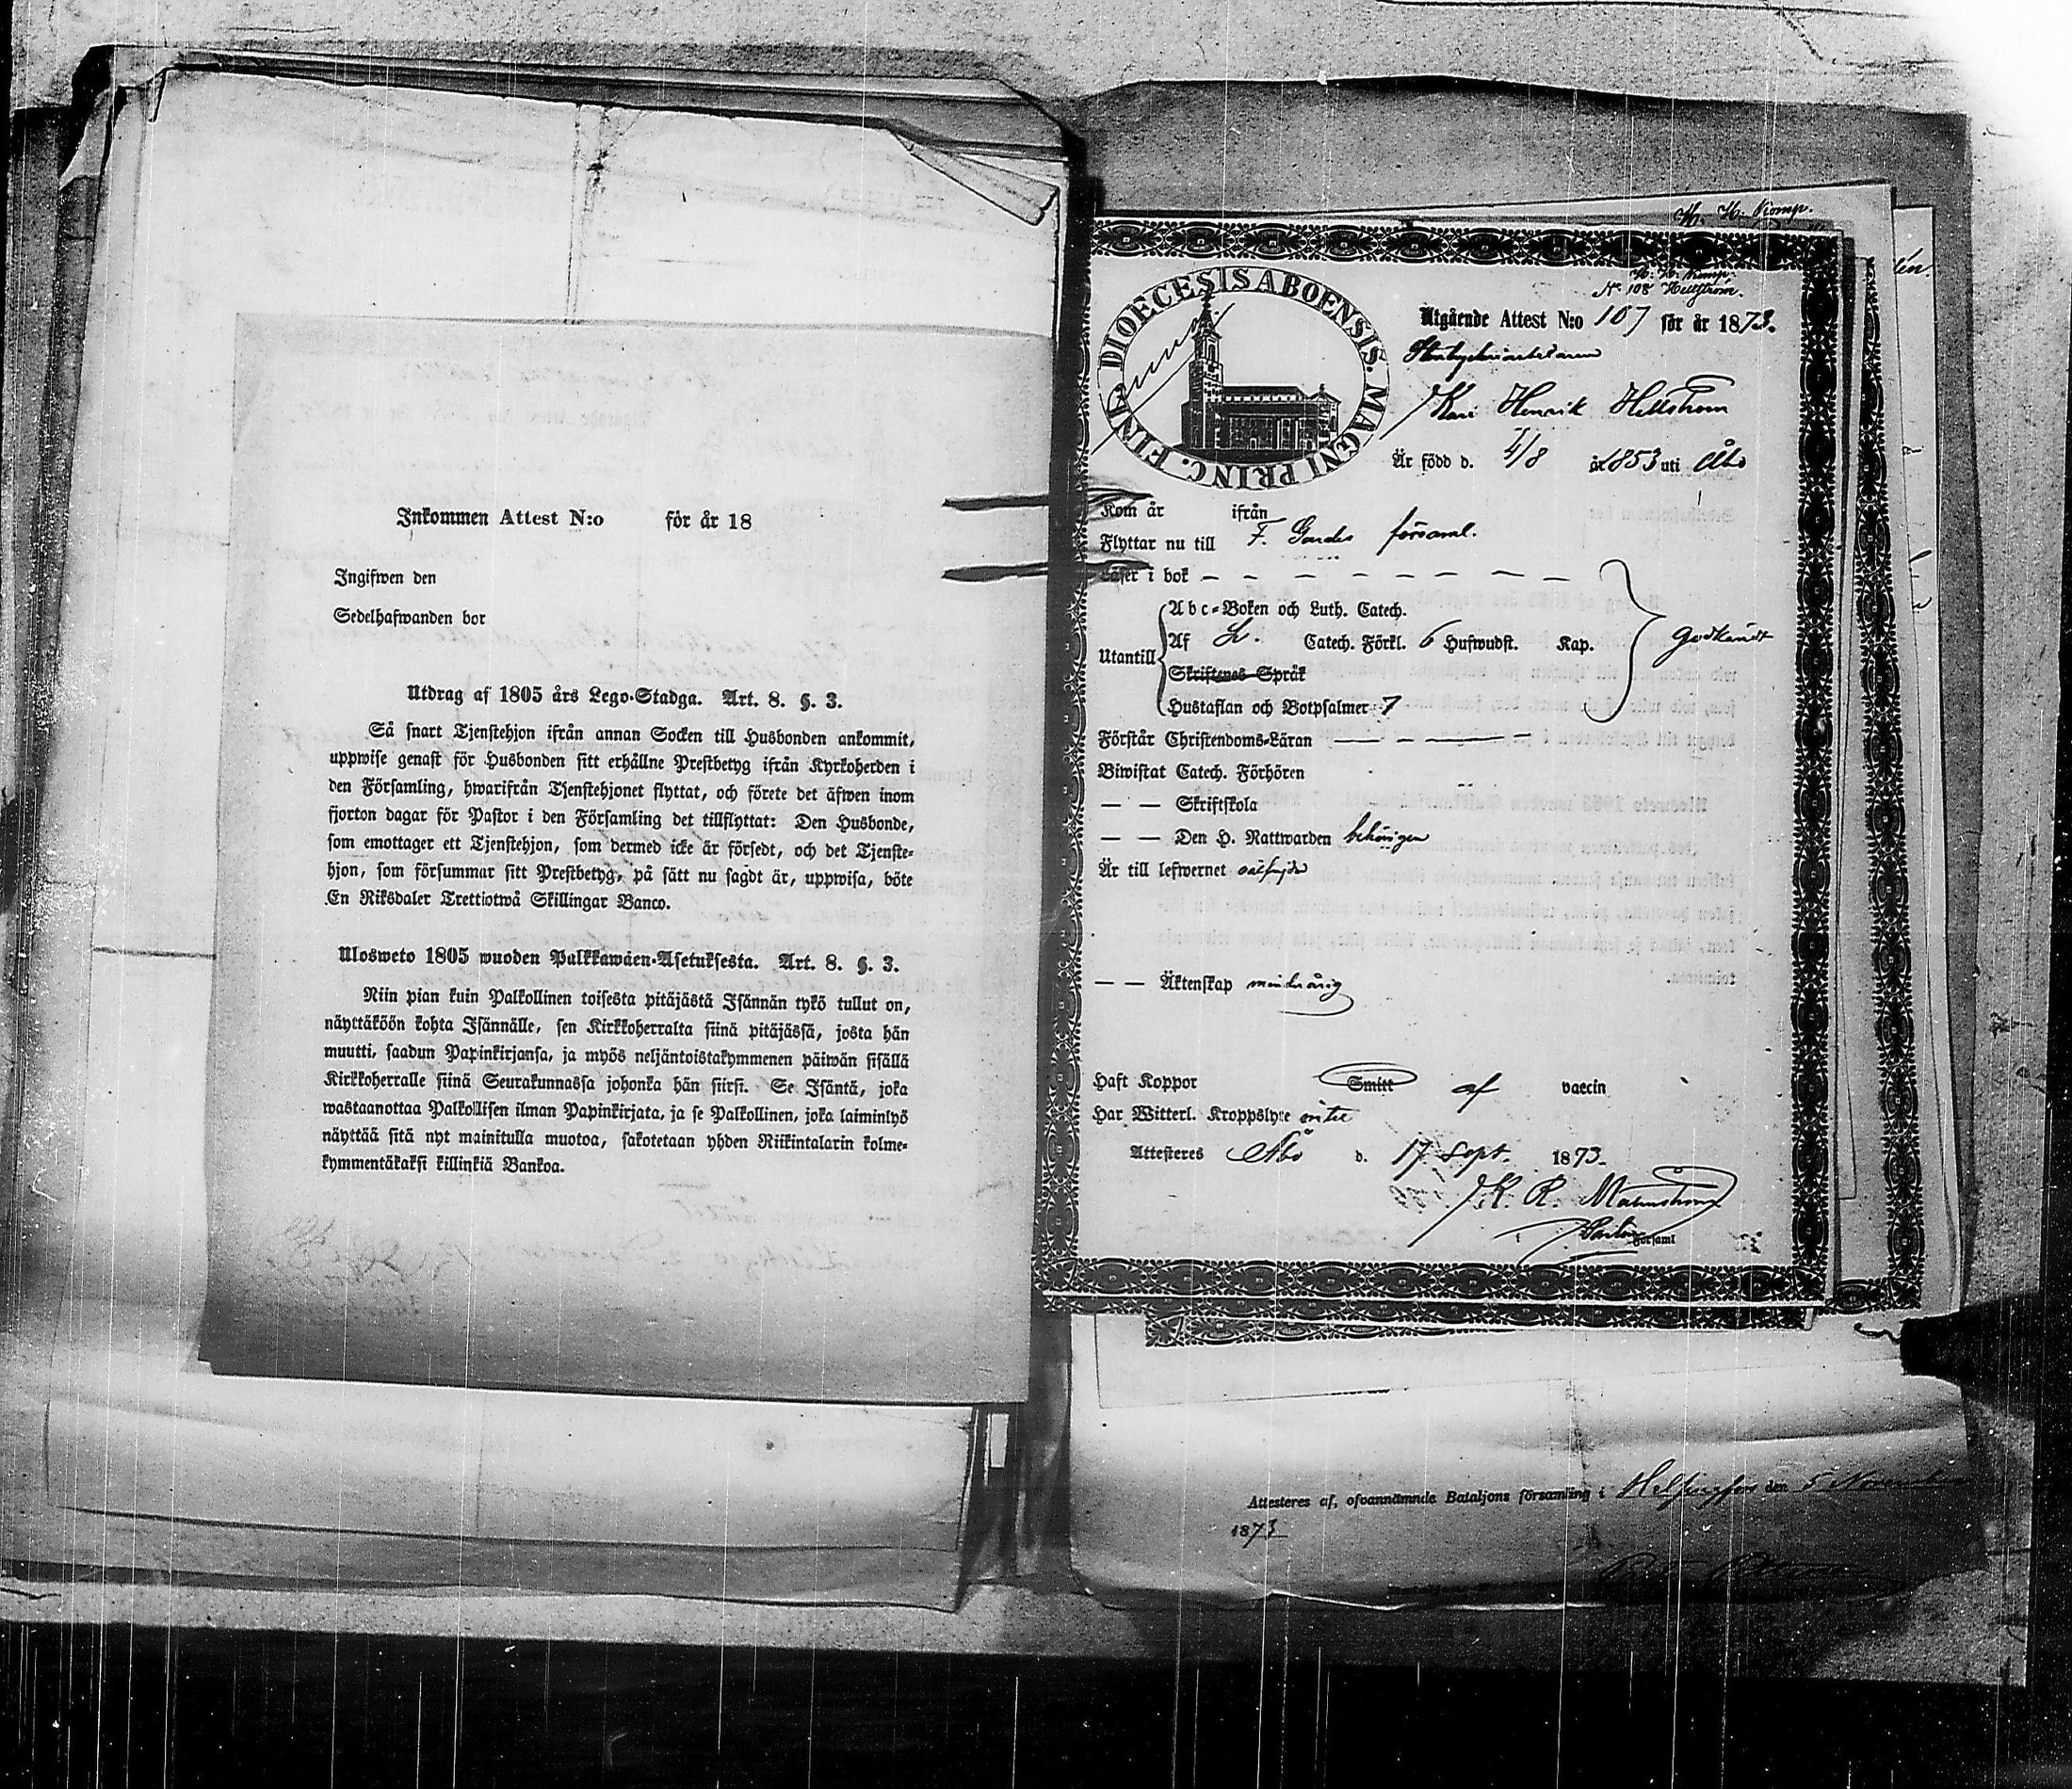 Inkommen Attest N:o för år 18
Ingifwen den
Sedelhafwanden bor
Utdrag af 1805 års Lego-Stadga. Art. 8. §. 3.
Så snart Tjenstehjon ifrån annan Socken till Husbonden ankommit,
uppwise genast för Husbonden sitt erhållne Prestbetyg ifrån Kyrkoherden i
den Församling, hwarifrån Tjenstehjonet flyttat, och förete det äfwen inom
fjorton dagar för Pastor i den Församling det tillflyttat: Den Husbonde,
som emottager ett Tjenstehjon, som dermed icke är försedt, och det Tjenste-
hjon, som försummar sitt Prestbetyg, på sätt nu sagdt är, uppwisa, böte
En Riksdaler Trettiotwå Skillingar Banco.
Ulosweto 1805 wuoden Palkkawäen-Asetuksesta. Art. 8. §. 3.
Niin pian kuin Palkollinen toisesta pitäjästä Isännän tykö tullut on,
näyttäköön kohta Isännälle, sen Kirkkoherralta siinä pitäjässä, josta hän
muutti, saadun Papinkirjansa, ja myös neljäntoistakymmenen päiwän sisällä
Kirkkoherralle siinä Seurakunnassa johonka hän siirsi. Se Isäntä, joka
wastaanottaa Palkollisen ilman Papinkirjata, ja se Palkollinen, joka laiminlyö
näyttää sitä nyt mainitulla muotoa, sakotetaan yhden Riikintalarin kolme-
kymmentäkaksi killinkiä Bankoa.
DIOECESIS ABOENSIS. MAGNI PRINC. FINL.
N:o 108 Hellström.
Utgående Attest N:o 107 för år 1873.
Henrik Hellström
Är född d. 4/8 år 1853 uti Åbo
Kom år ifrån
Flyttar nu till F. Gardes församl.
Läser i bok — — — — — — — —
Abc-Boken och Luth. Catech.
Utantill Af Catech. Förkl. 6 Hufwudst. Kap. Godkändt
Skriftenes Språk
Hustaflan och Botpsalmer 7
Förstår Christendoms-Läran — — — —
Biwistat Catech. Förhören
— — Skriftskola
— — Den H. Nattwarden behörigen
Är till lefwernet välfrejdad
— — Äktenskap minderårig
Haft Koppor Smitt af vaccin
Har Witterl. Kroppslyte intet
Attesteres Åbo d. 17 Sept. 1873.
K. R. Malmström
Församl
Attesteres af, ofvannämnde Bataljons församling i Helsingfors den 5 November
1873